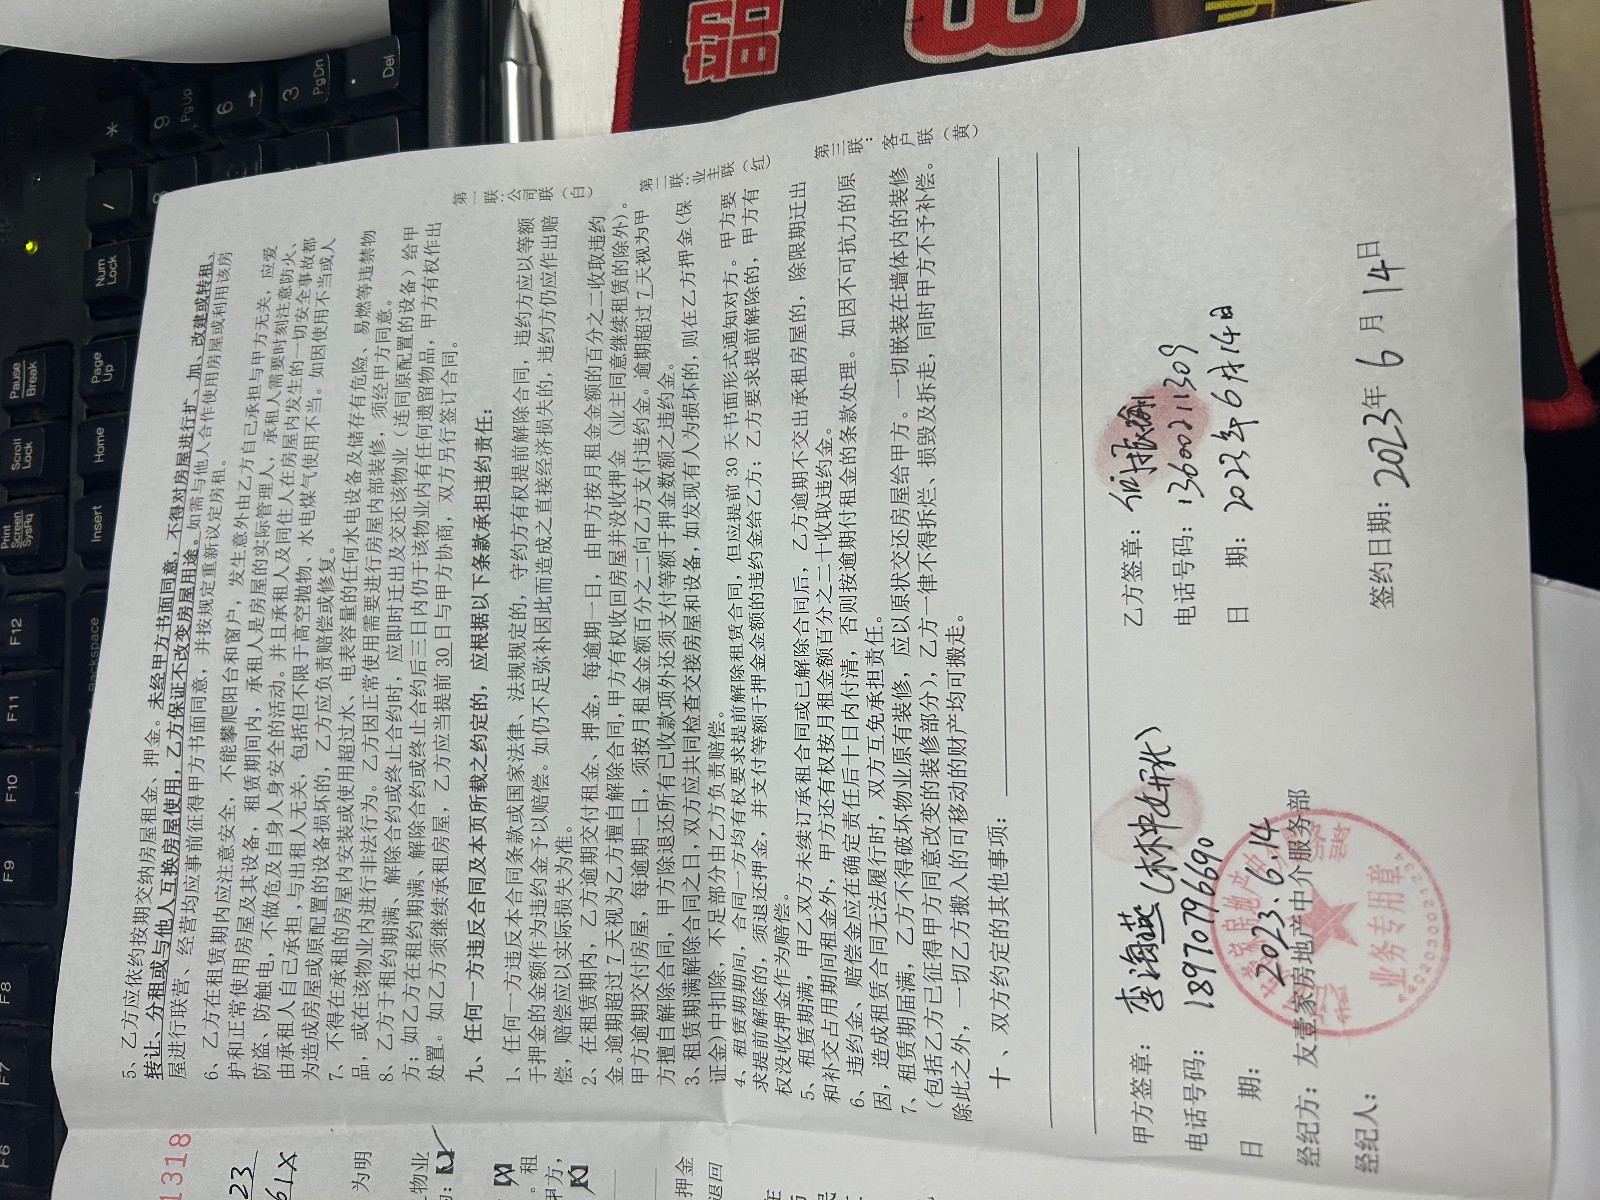 5、乙方应依约按期交纳房屋租金、押金。未经甲方书面同意，不得对房屋进行扩、加、改建或转租、
转让、分租或与他人互换房屋使用，乙方保证不改变房屋用途。如需与他人合作使用房屋或利用该房
屋进行联营、经营均应事前征得甲方书面同意，并按规定重新议定房租。
6、乙方在租赁期内应注意安全，不能攀爬阳台和窗户，发生意外由乙方自己承担与甲方无关，应爱
护和正常使用房屋及其设备，租赁期间内，承租人是房屋的实际管理人，承租人需要时刻注意防火、
防盗、防触电，不做危及自身人身安全的活动。并且承租人及同住人在房屋内发生的一切安全事故都
由承租人自己承担，与出租人无关，包括但不限于高空抛物、水电煤气使用不当。如因使用不当或人
为造成房屋或原配置的设备损坏的，乙方应负责赔偿或修复。
7、不得在承租的房屋内安装或使用超过水、电表容量的任何水电设备及储存有危险、易燃等违禁物
品，或在该物业内进行非法行为。乙方因正常使用需要进行房屋内部装修，须经甲方同意。
8、乙方于租约期满、解除合约或终止合约时，应即时迁出及交还该物业（连同原配置的设备）给甲
方；如乙方在租约期满、解除合约或终止合约后三日内仍于该物业内有任何遗留物品，甲方有权作出
处置。如乙方须继续承租房屋，乙方应当提前 30 日与甲方协商，双方另行签订合同。
九、任何一方违反合同及本页所载之约定的，应根据以下条款承担违约责任：
1、任何一方违反本合同条款或国家法律、法规规定的，守约方有权提前解除合同，违约方应以等额
于押金的金额作为违约金予以赔偿。如仍不足弥补因此而造成之直接经济损失的，违约方仍应作出赔
偿，赔偿应以实际损失为准。
2、在租赁期内，乙方逾期交付租金、押金，每逾期一日，由甲方按月租金金额的百分之二收取违约
金。逾期超过 7 天视为乙方擅自解除合同，甲方有权收回房屋并没收押金（业主同意继续租赁的除外）。
甲方逾期交付房屋，每逾期一日，须按月租金金额百分之二向乙方支付违约金。逾期超过 7 天视为甲
方擅自解除合同，甲方除退还所有已收款项外还须支付等额于押金数额之违约金。
3、租赁期满解除合同之日，双方应共同检查交接房屋和设备，如发现有人为损坏的，则在乙方押金（保
证金）中扣除，不足部分由乙方负责赔偿。
4、租赁期期间，合同一方均有权要求提前解除租赁合同，但应提前 30 天书面形式通知对方。甲方要
求提前解除的，须退还押金，并支付等额于押金金额的违约金给乙方；乙方要求提前解除的，甲方有
权没收押金作为赔偿。
5、租赁期满，甲乙双方未续订承租合同或已解除合同后，乙方逾期不交出承租房屋的，除限期迁出
和补交占用期间租金外，甲方还有权按月租金额百分之二十收取违约金。
6、违约金、赔偿金应在确定责任后十日内付清，否则按逾期付租金的条款处理。如因不可抗力的原
因，造成租赁合同无法履行时，双方互免承担责任。
7、租赁期届满，乙方不得破坏物业原有装修，应以原状交还房屋给甲方。一切嵌装在墙体内的装修
（包括乙方已征得甲方同意改变的装修部分），乙方一律不得拆烂、损毁及拆走，同时甲方不予补偿。
除此之外，一切乙方搬入的可移动的财产均可搬走。
十、双方约定的其他事项：
第一联：公司联（白）
第二联：业主联（红）
第三联：客户联（黄）
甲方签章：李海燕（林中妍代）
乙方签章：何振衡
电话号码：18970796690
电话号码：13600211309
日 期：2023.6.14
日 期：2023年6月14日
经纪方：友壹家房地产中介服务部
经纪人：
签约日期：2023年6月14日
家房地产
业务专用章
1318
23
61X
为明
物业
租
甲方，
押金
退回
韶
8
Print Screen SysRq
Scroll Lock
Pause Break
Insert
Home
Page Up
Num Lock
/
*
9 PgUp
6 →
3 PgDn
. Del
Backspace
F6
F7
F8
F9
F10
F11
F12